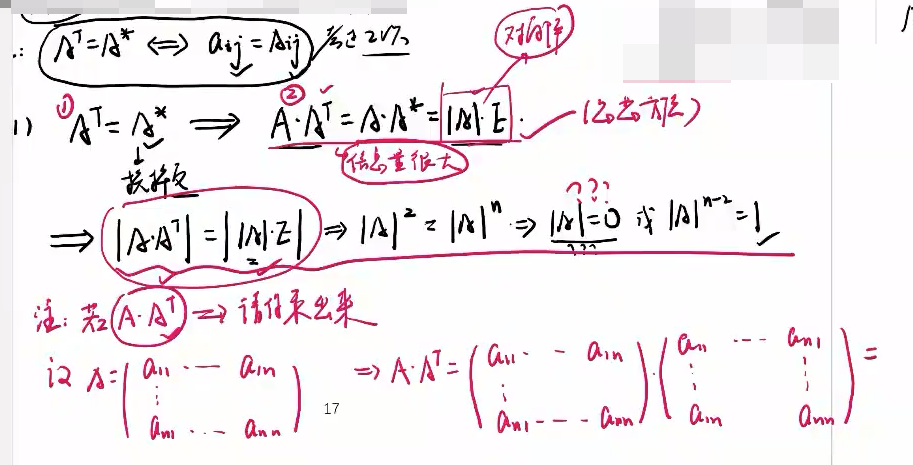 Aᵀ=A* ⟺ aij=Aij
对角阵
1) ① Aᵀ=A* ⟹ ② A·Aᵀ=A·A*=|A|·E.
信息量很大
⟹ |A·Aᵀ|=||A|·E| ⟹ |A|²=|A|ⁿ ⟹ |A|=0 或 |A|ⁿ⁻²=1
???
???
注: 若 A·Aᵀ ⟹ 请你乘出来
设 A=(a11 ·— a1n ⟹ A·Aᵀ=(a11 · - a1n)·(a11 --- an1)=
⋮ ⋮ ⋮ ⋮
an1 ··- ann) an1 - - - ann a1n ann
17